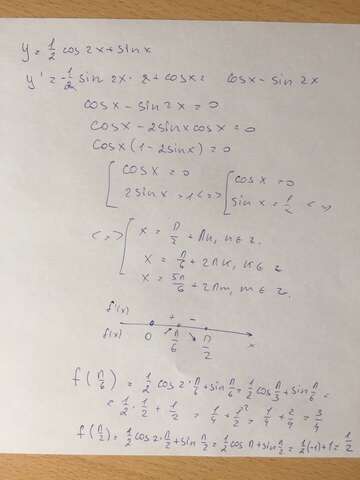 y = 1/2 cos 2x + sin x
y' = -1/2 sin 2x · 2 + cos x = cos x - sin 2x
cos x - sin 2x = 0
cos x - 2 sin x cos x = 0
cos x (1 - 2 sin x) = 0
[ cos x = 0 [ cos x = 0
2 sin x = 1 <=> sin x = 1/2 <=>
<=> [ x = π/2 + πn, n ∈ z.
x = π/6 + 2πk, k ∈ z
x = 5π/6 + 2πm, m ∈ z.
f'(x) + -
f(x) 0 π/6 π/2 x
f(π/6) = 1/2 cos 2·π/6 + sin π/6 = 1/2 cos π/3 + sin π/6 =
= 1/2 · 1/2 + 1/2 = 1/4 + 1/2 = 1/4 + 2/4 = 3/4
f(π/2) = 1/2 cos 2·π/2 + sin π/2 = 1/2 cos π + sin π/2 = 1/2(-1) + 1 = 1/2